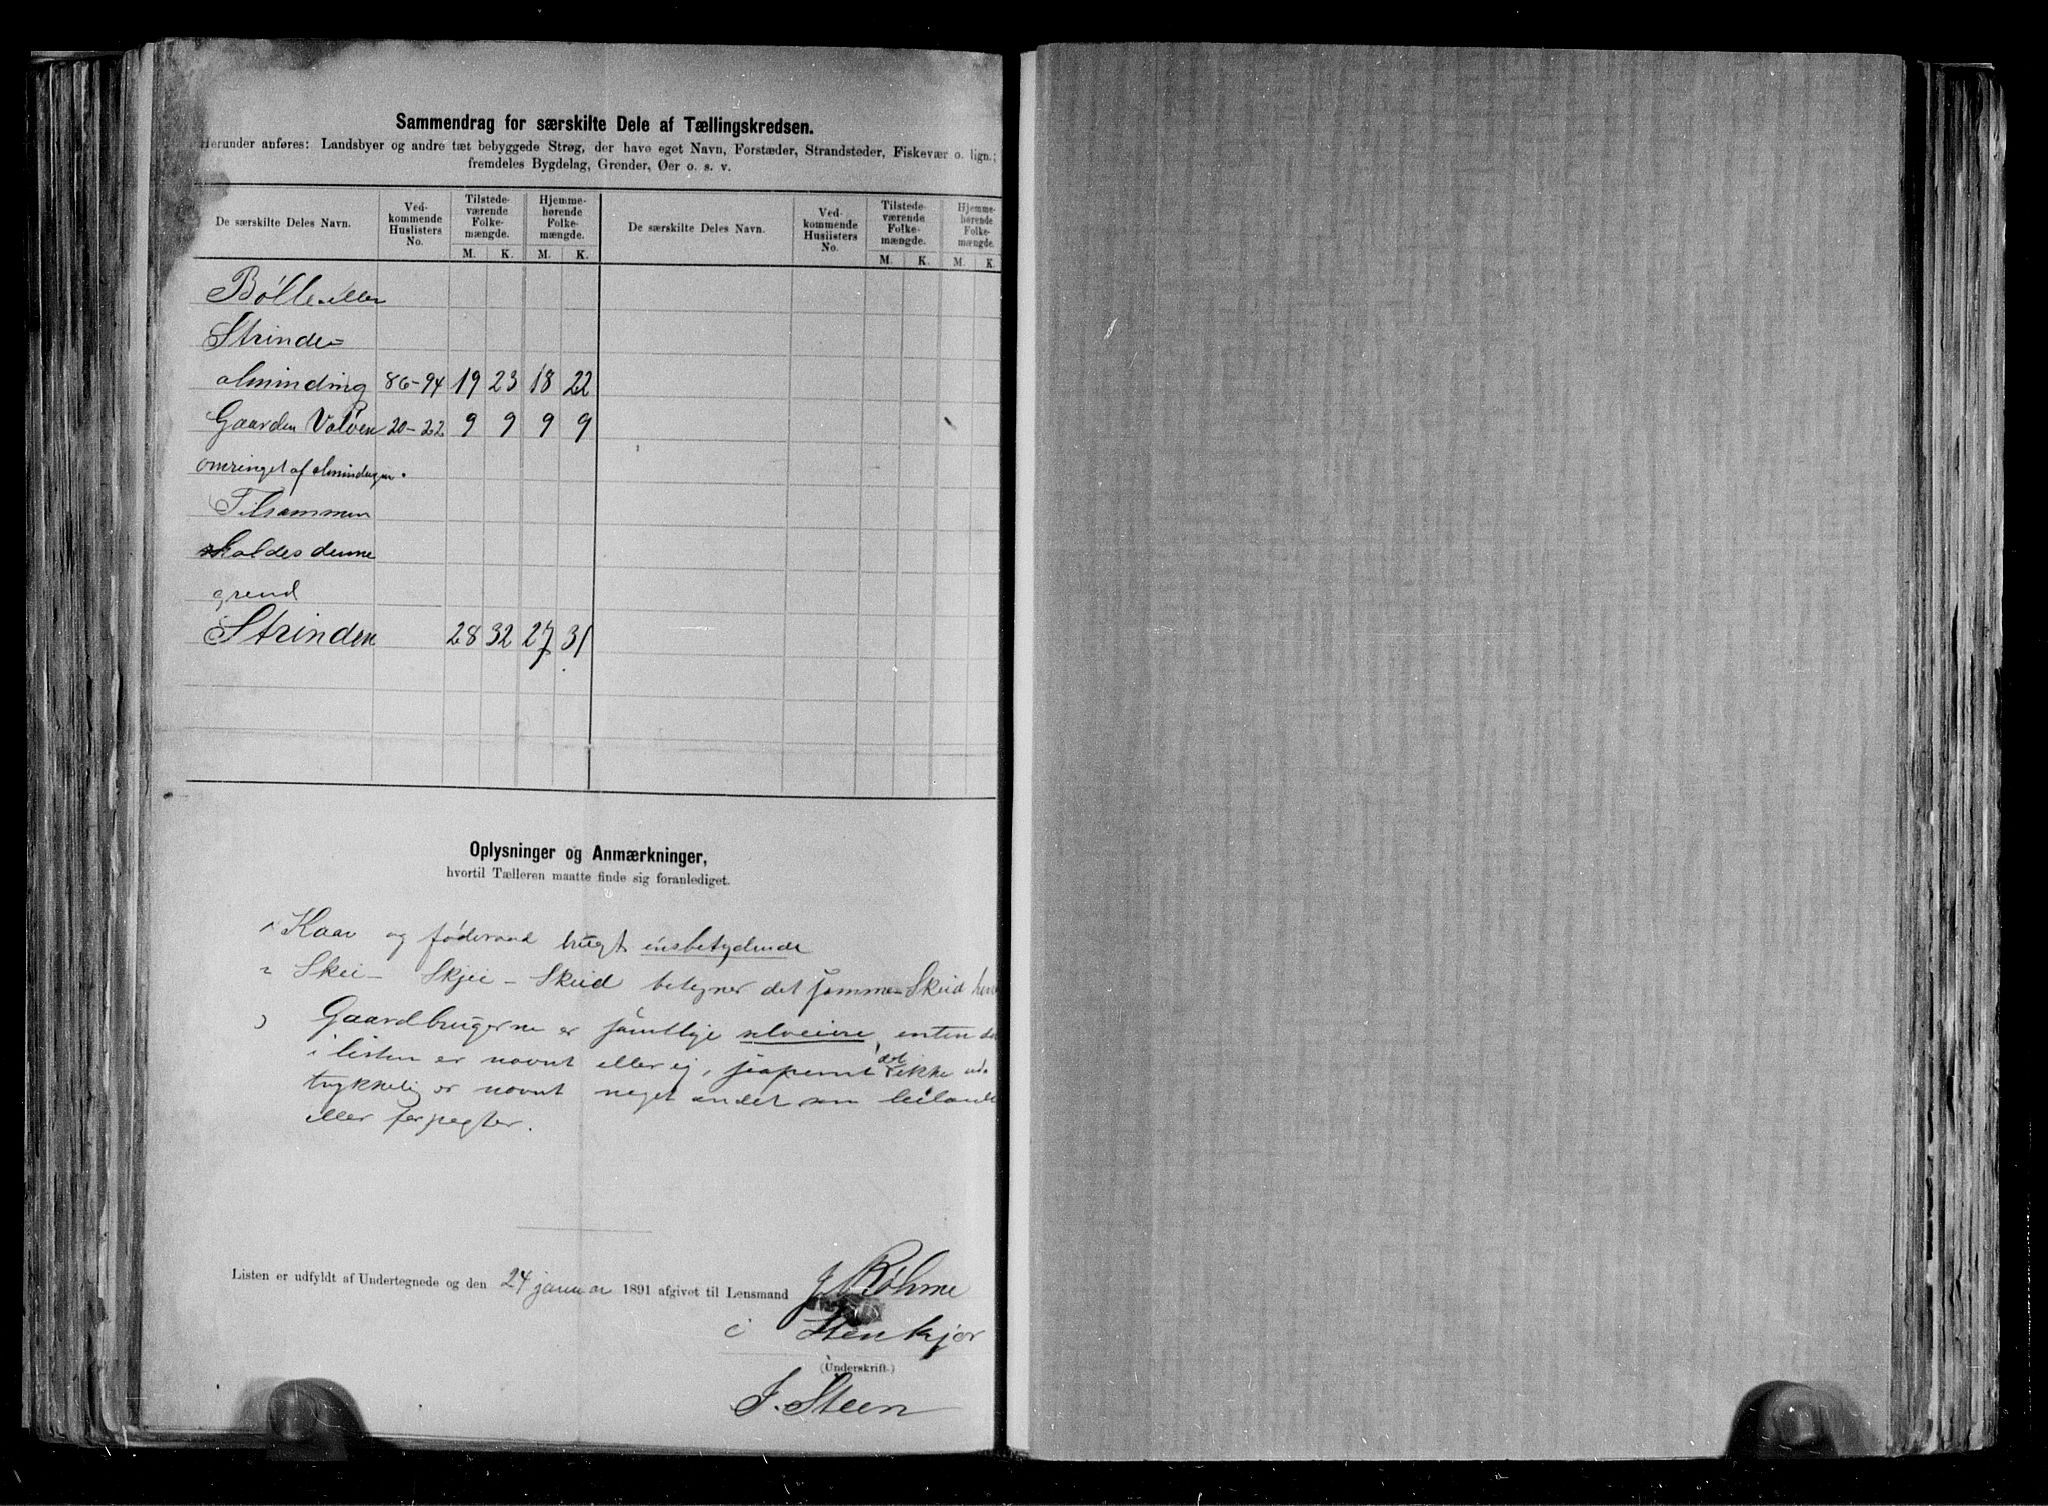 Sammendrag for særskilte Dele af Tællingskredsen.
Herunder anføres: Landsbyer og andre tæt bebyggede Strøg, der have eget Navn, Forstæder, Strandsteder, Fiskevær o. lign.;
fremdeles Bygdelag, Grender, Øer o. s. v.
De særskilte Deles Navn. Ved-kommende Huslisters No. Tilstede-værende Folke-mængde. Hjemme-hørende Folke-mængde. De særskilte Deles Navn. Ved-kommende Huslisters No. Tilstede-værende Folke-mængde. Hjemme-hørende Folke-mængde.
M. K. M. K. M. K. M. K.
Bølle eller
Strinde=
alminding 86-94 19 23 18 22
Gaarden Valøen 20-22 9 9 9 9
omringet af almindingen.
Tilsammen
kaldes denne
grend
Strinden 28 32 27 31
Oplysninger og Anmærkninger,
hvortil Tælleren maatte finde sig foranlediget.
1 Kaar og føderaad brugt ensbetydende
2 Skei - Skjei - Skeid betegner det samme Skeid
3 Gaardbrugerne er samtlige selveiere, enten
i listen er navnt eller ei, saafremt det ikke ud-
trykkelig er navnt noget andet som
eller forpagter.
Listen er udfyldt af Undertegnede og den 24 januar 1891 afgivet til Lensmand J. Bøhme
i Stenkjær
(Underskrift.)
J. Steen